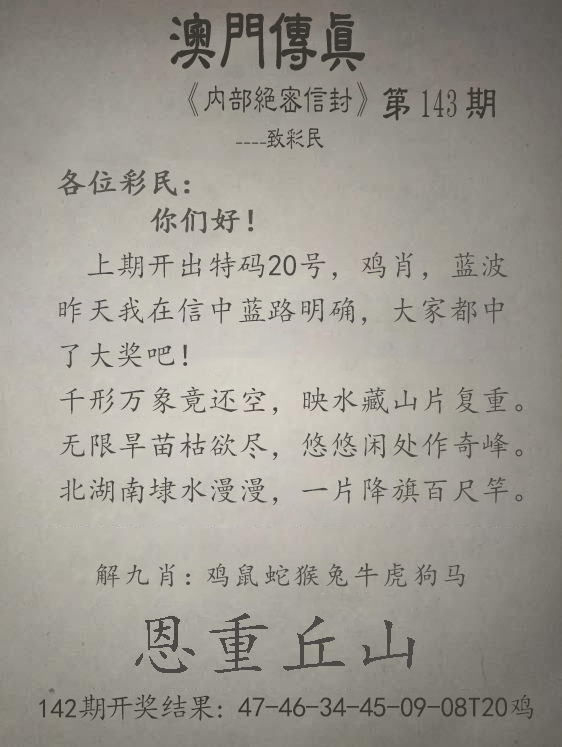 澳門傳眞
《内部絕密信封》第143期
----致彩民
各位彩民：
你们好！
上期开出特码20号，鸡肖，蓝波
昨天我在信中蓝路明确，大家都中
了大奖吧！
千形万象竟还空，映水藏山片复重。
无限旱苗枯欲尽，悠悠闲处作奇峰。
北湖南埭水漫漫，一片降旗百尺竿。
解九肖：鸡鼠蛇猴兔牛虎狗马
恩重丘山
142期开奖结果：47-46-34-45-09-08T20鸡